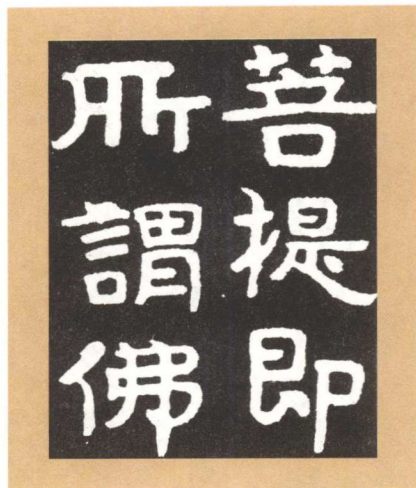 菩提即
所謂佛